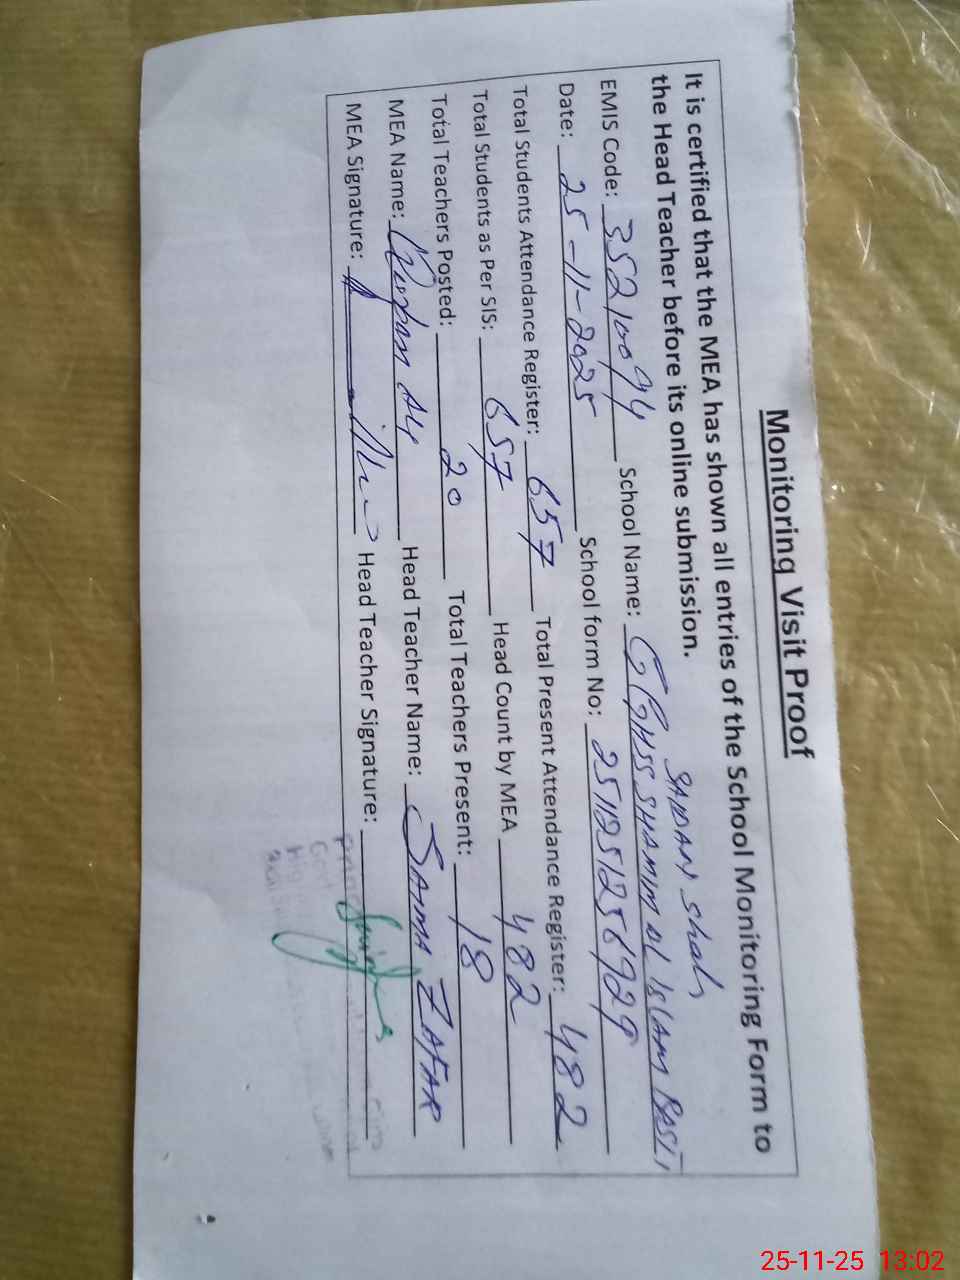 Monitoring Visit Proof
It is certified that the MEA has shown all entries of the School Monitoring Form to
the Head Teacher before its online submission.
SADAN Shah
EMIS Code: 35210094 School Name: GGHSS SHAMIM UL ISLAM BASTI
Date: 25-11-2025 School form No:
Total Students Attendance Register: 657 Total Present Attendance Register: 482
Total Students as Per SIS: 657 Head Count by MEA 482
Total Teachers Posted: 20 Total Teachers Present: 18
MEA Name: Ali Head Teacher Name: SAIMA ZAFAR
MEA Signature: Head Teacher Signature:
25-11-25 13:02